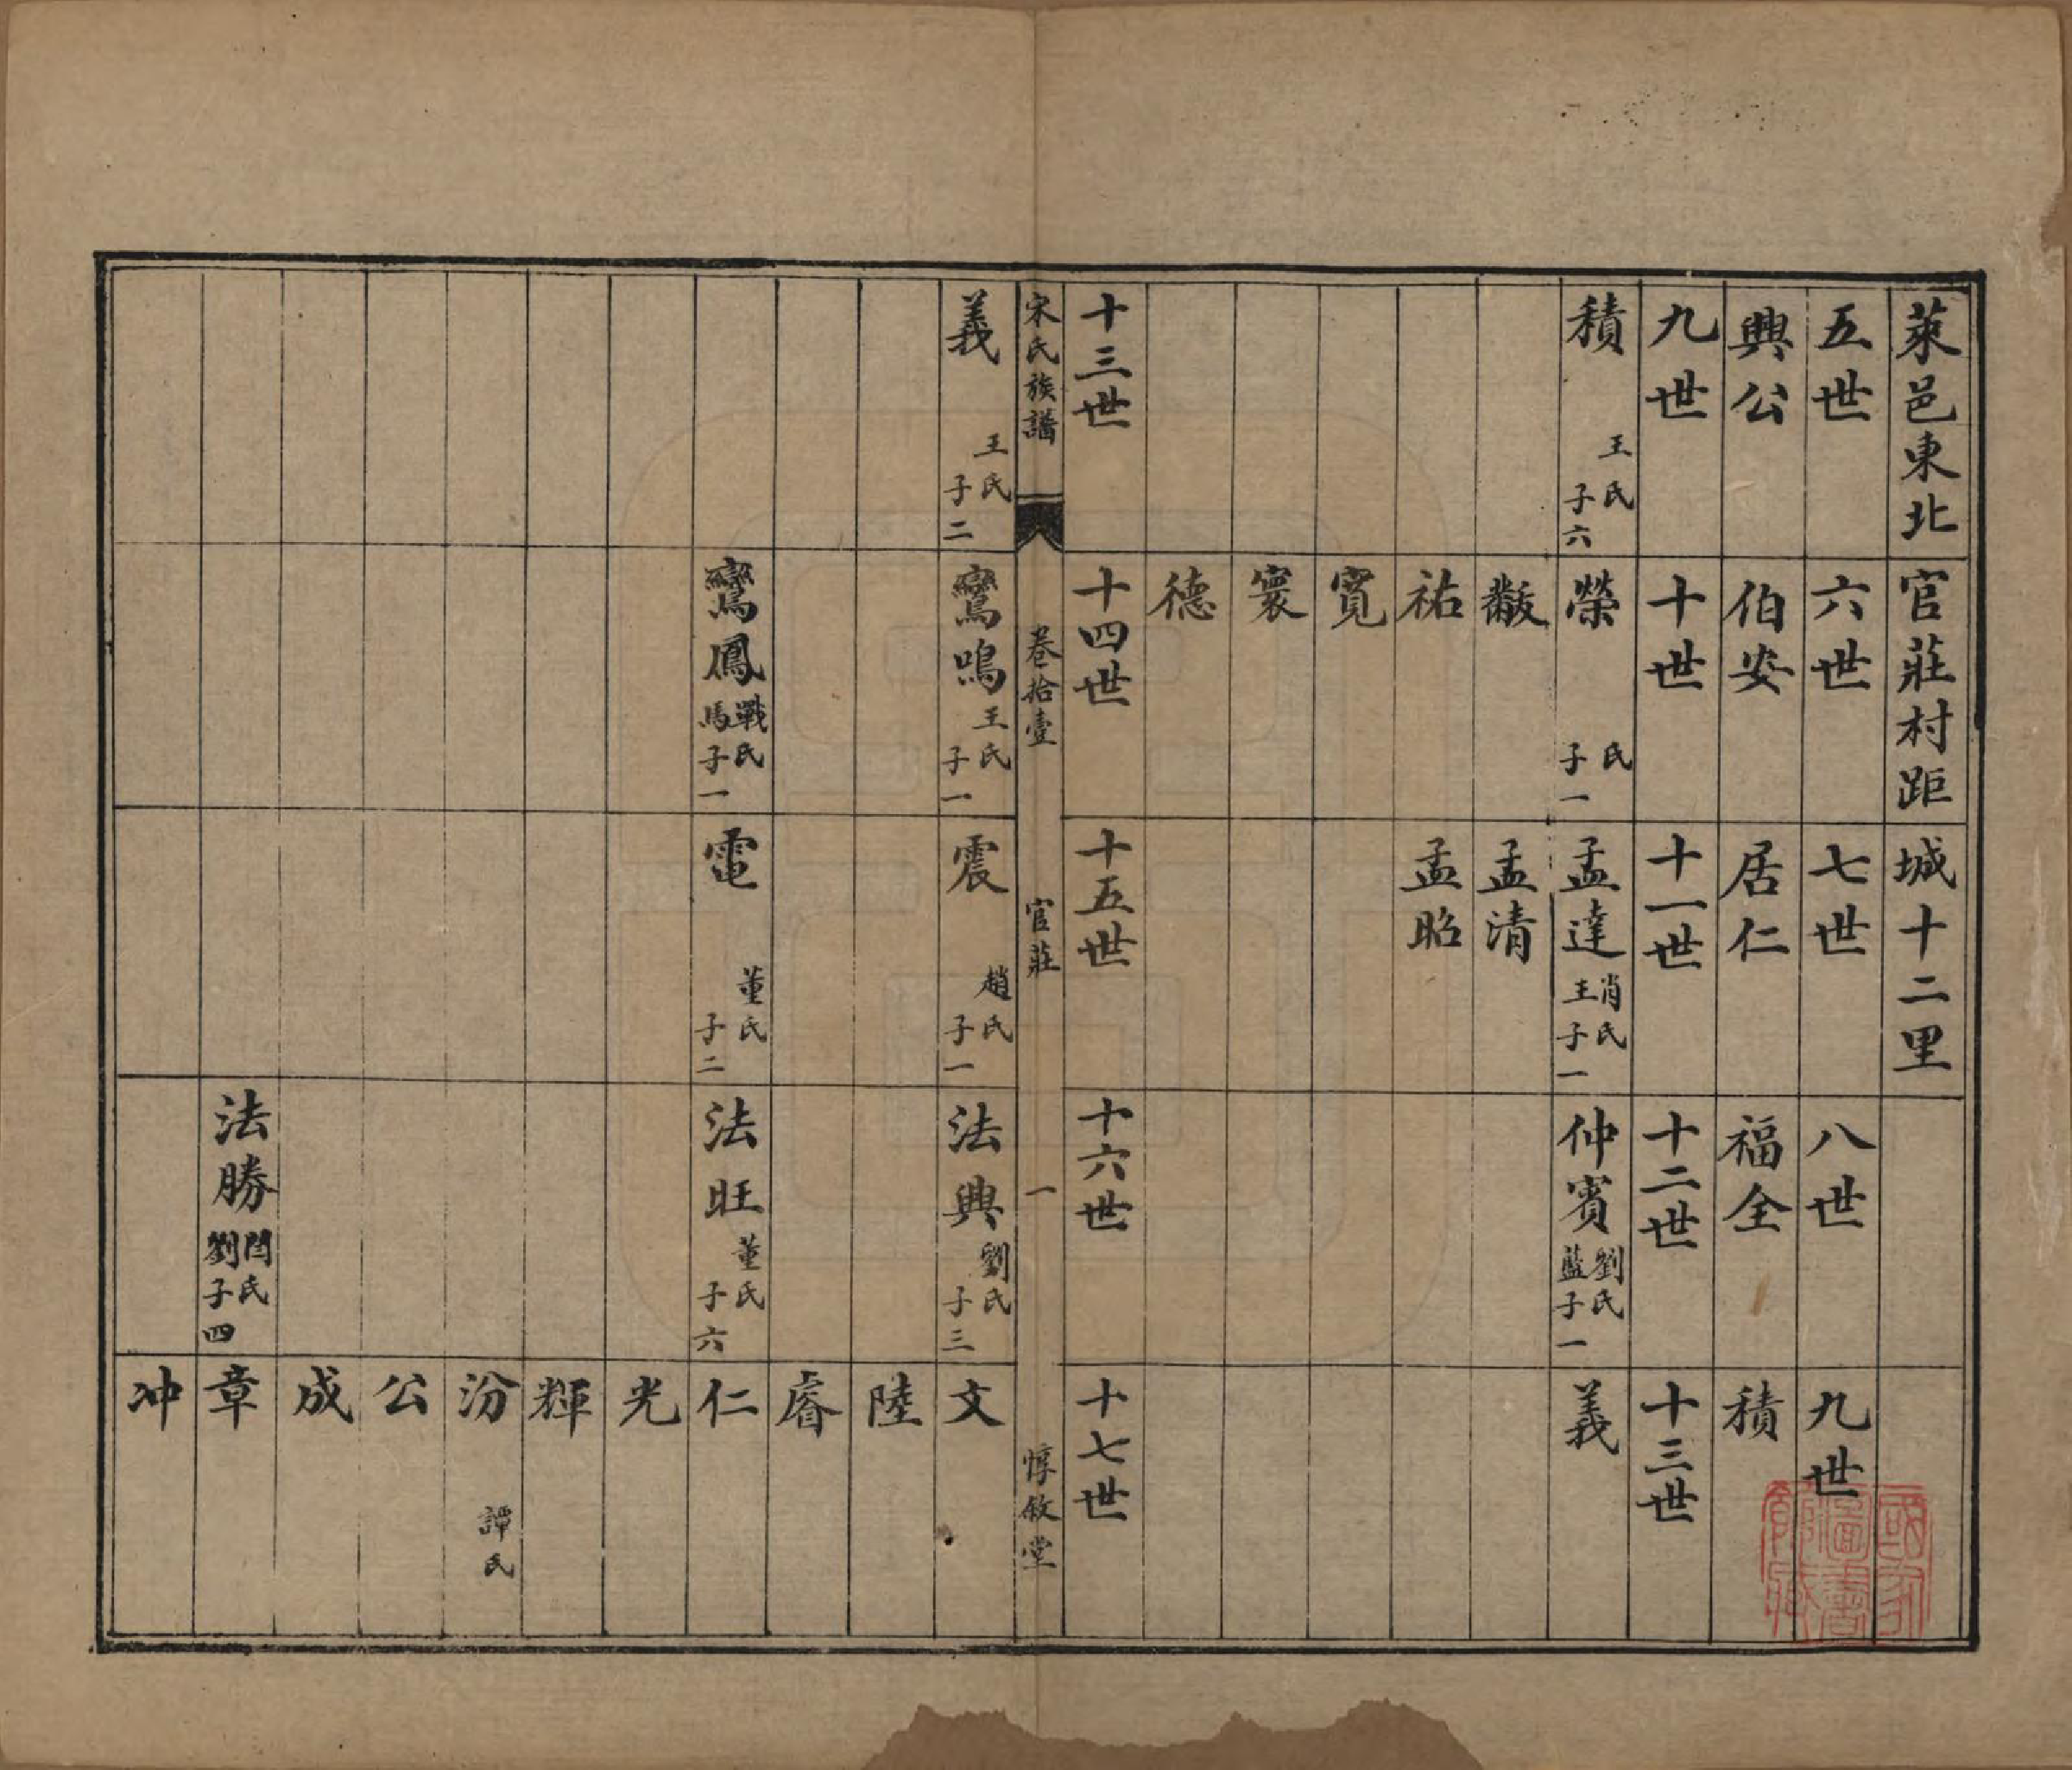 萊邑東北官莊村距城十二里
五世 六世 七世 八世 九世
興公 伯安 居仁 福全 積
九世 十世 十一世 十二世 十三世
積 王氏 子六 榮 氏 子一 孟達 肖王氏 子一 仲賓 劉藍氏 子一 義
黻 孟清
祐 孟昭
寬
寰
德
十三世 十四世 十五世 十六世 十七世
宋氏族譜 卷拾壹 官莊 一 惇敘堂
義 王氏 子二 鸞鳴 王氏 子一 震 趙氏 子一 法興 劉氏 子三 文
陸
睿
鸞鳳 戰馬氏 子一 電 董氏 子二 法旺 董氏 子六 仁
光
輝
汾 譚氏
公
成
法勝 閆劉氏 子四 章
冲
國家圖書館藏